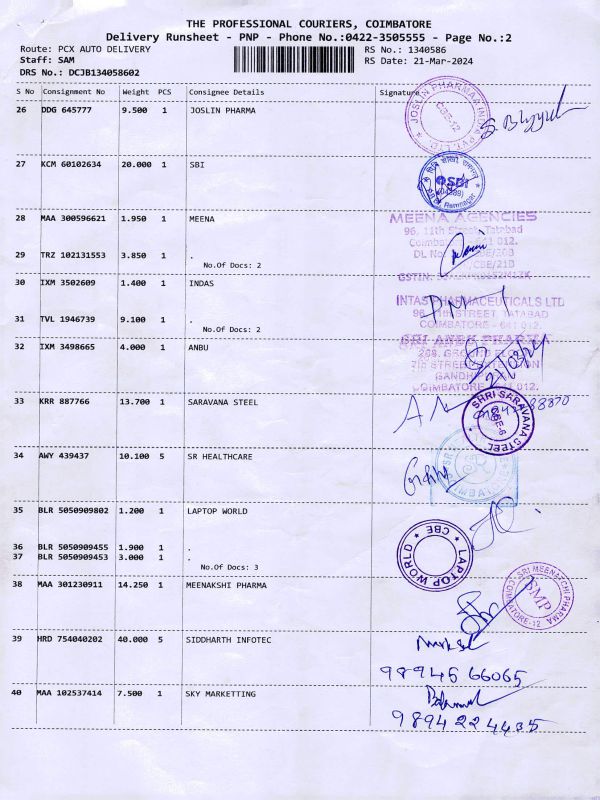 THE PROFESSIONAL COURIERS, COIMBATORE
Delivery Runsheet - PNP - Phone No.:0422-3505555 - Page No.:2
Route: PCX AUTO DELIVERY RS No.: 1340586
Staff: SAM RS Date: 21-Mar-2024
DRS No.: DCJB134058602
S No Consignment No Weight PCS Consignee Details Signature
26 DDG 645777 9.500 1 JOSLIN PHARMA
JOSLIN PHARMAA INDIA
CBE-12
27 KCM 60102634 20.000 1 SBI
SBI
Ramnagar
28 MAA 300596621 1.950 1 MEENA
MEENA AGENCIES
96, 11th Street, Tatabad
29 TRZ 102131553 3.850 1 .
No.Of Docs: 2
30 IXM 3502609 1.400 1 INDAS
INTAS PHARMACEUTICALS LTD
STREET, TATABAD
COIMBATORE - 641 012.
31 TVL 1946739 9.100 1 .
No.Of Docs: 2
32 IXM 3498665 4.000 1 ANBU
SRI ANBU PHARMA
COIMBATORE
33 KRR 887766 13.700 1 SARAVANA STEEL
SHRI SARAVANA STEEL
CBE-6
34 AWY 439437 10.100 5 SR HEALTHCARE
35 BLR 5050909802 1.200 1 LAPTOP WORLD
LAPTOP WORLD
CBE
36 BLR 5050909455 1.900 1 .
37 BLR 5050909453 3.000 1 .
No.Of Docs: 3
38 MAA 301230911 14.250 1 MEENAKSHI PHARMA
SRI MEENATCHI PHARMA
COIMBATORE-12
SMP
39 HRD 754040202 40.000 5 SIDDHARTH INFOTEC
98945 66065
40 MAA 102537414 7.500 1 SKY MARKETTING
9894224435